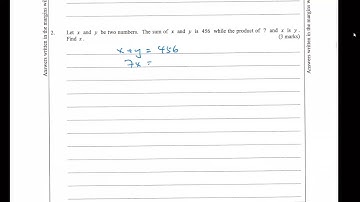 2. Let x and y be two numbers. The sum of x and y is 456 while the product of 7 and x is y.
Find x. (3 marks)
x + y = 456
7x =
Answers written in the margins w
Answers written in the margins w